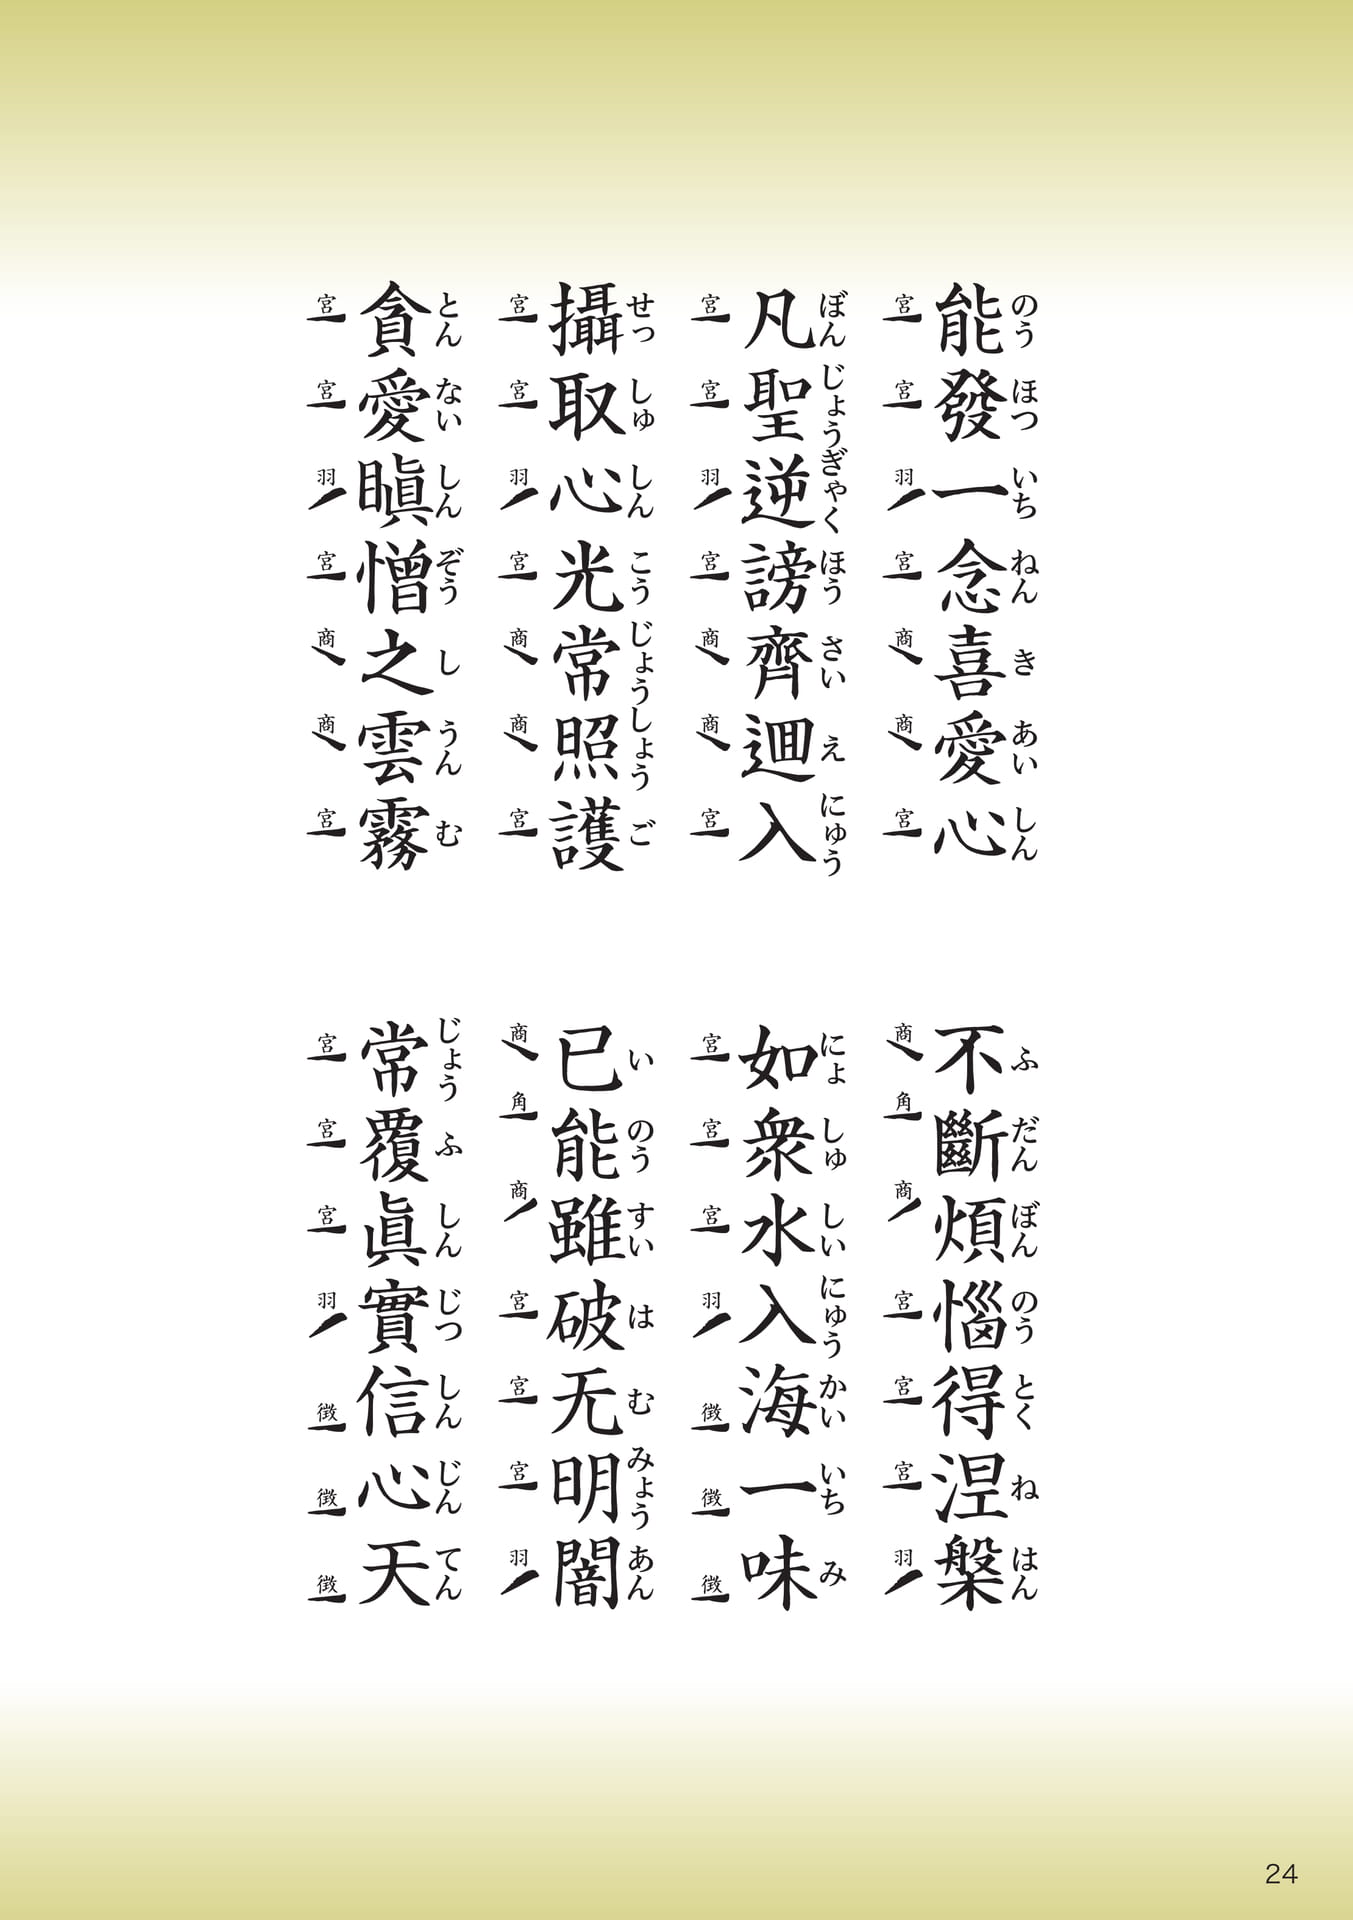 能發一念喜愛心
のう ほつ いち ねん き あい しん
宮 宮 羽 宮 商 商 宮
不斷煩惱得涅槃
ふ だん ぼん のう とく ね はん
商 角 商 宮 宮 宮 羽
凡聖逆謗齊迴入
ぼん じょう ぎゃく ほう さい え にゅう
宮 宮 羽 宮 商 商 宮
如衆水入海一味
にょ しゅ しい にゅう かい いち み
宮 宮 宮 羽 徴 徴 徴
攝取心光常照護
せっ しゅ しん こう じょう しょう ご
宮 宮 羽 宮 商 商 宮
已能雖破无明闇
い のう すい は む みょう あん
商 角 商 宮 宮 宮 羽
貪愛瞋憎之雲霧
とん ない しん ぞう し うん む
宮 宮 羽 宮 商 商 宮
常覆眞實信心天
じょう ふ しん じつ しん じん てん
宮 宮 宮 羽 徴 徴 徴
24